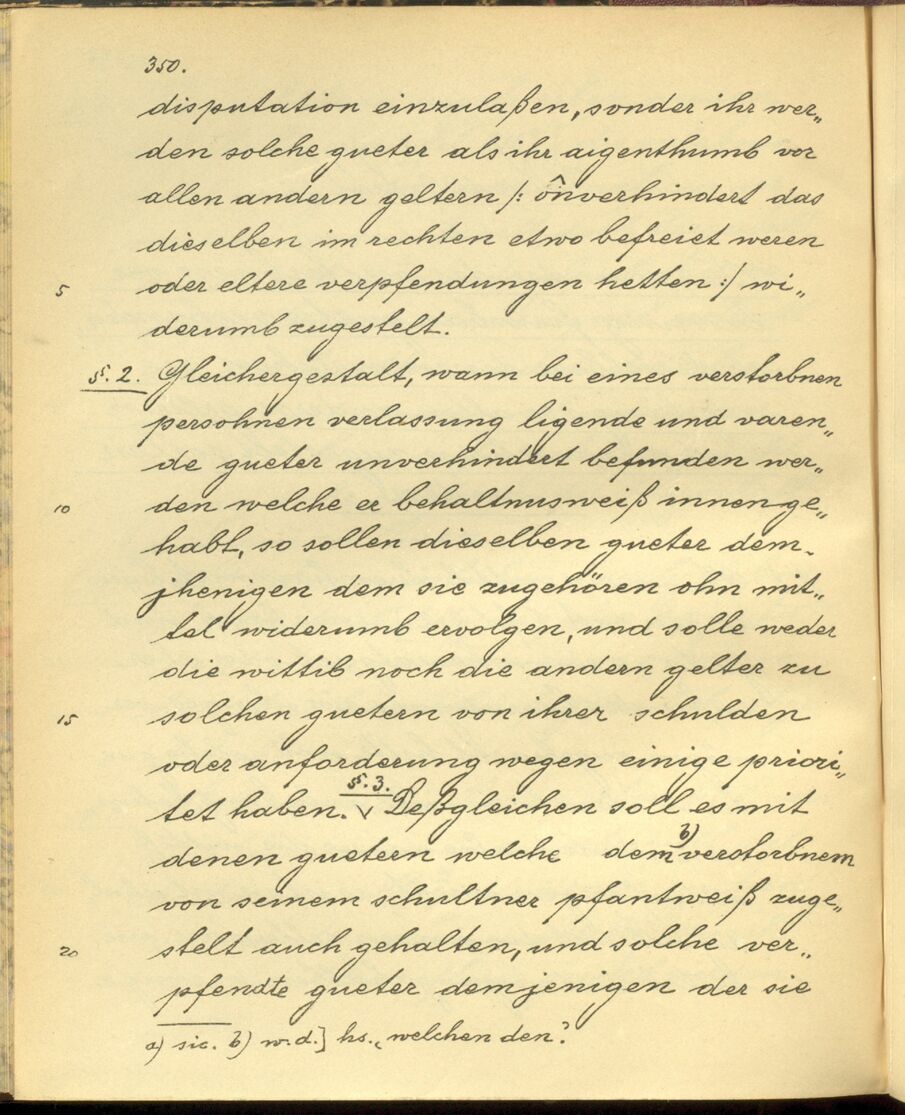 350.
disputation einzulaßen, sonder ihr wer„
den solche gueter als ihr aigenthumb vor
allen andern geltern /: ôn verhindert das
dieselben im rechten etwo befreiet weren
5 oder eltere verpfendungen hetten :/ wi„
derumb zugestelt.
§. 2. Gleichergestalt, wann bei eines verstorbnen
persohnen verlassung ligende und varen„
de gueter unverhindert befunden wer„
10 den welche er behaltnusweiß innen ge„
habt, so sollen dieselben gueter dem-
jhenigen dem sie zugehören ohn mit„
tel widerumb ervolgen, und solle weder
die wittib noch die andern gelter zu
15 solchen guetern von ihrer schulden
oder anforderung wegen einige priori„
tet haben. §. 3. Deßgleichen soll es mit
denen guetern welche dem b) verstorbnem
von seinem schultner pfantweiß zuge„
20 stelt auch gehalten, und solche ver„
pfendte gueter demjenigen der sie
a) sic. b) w. d.] hs. „welchen den“